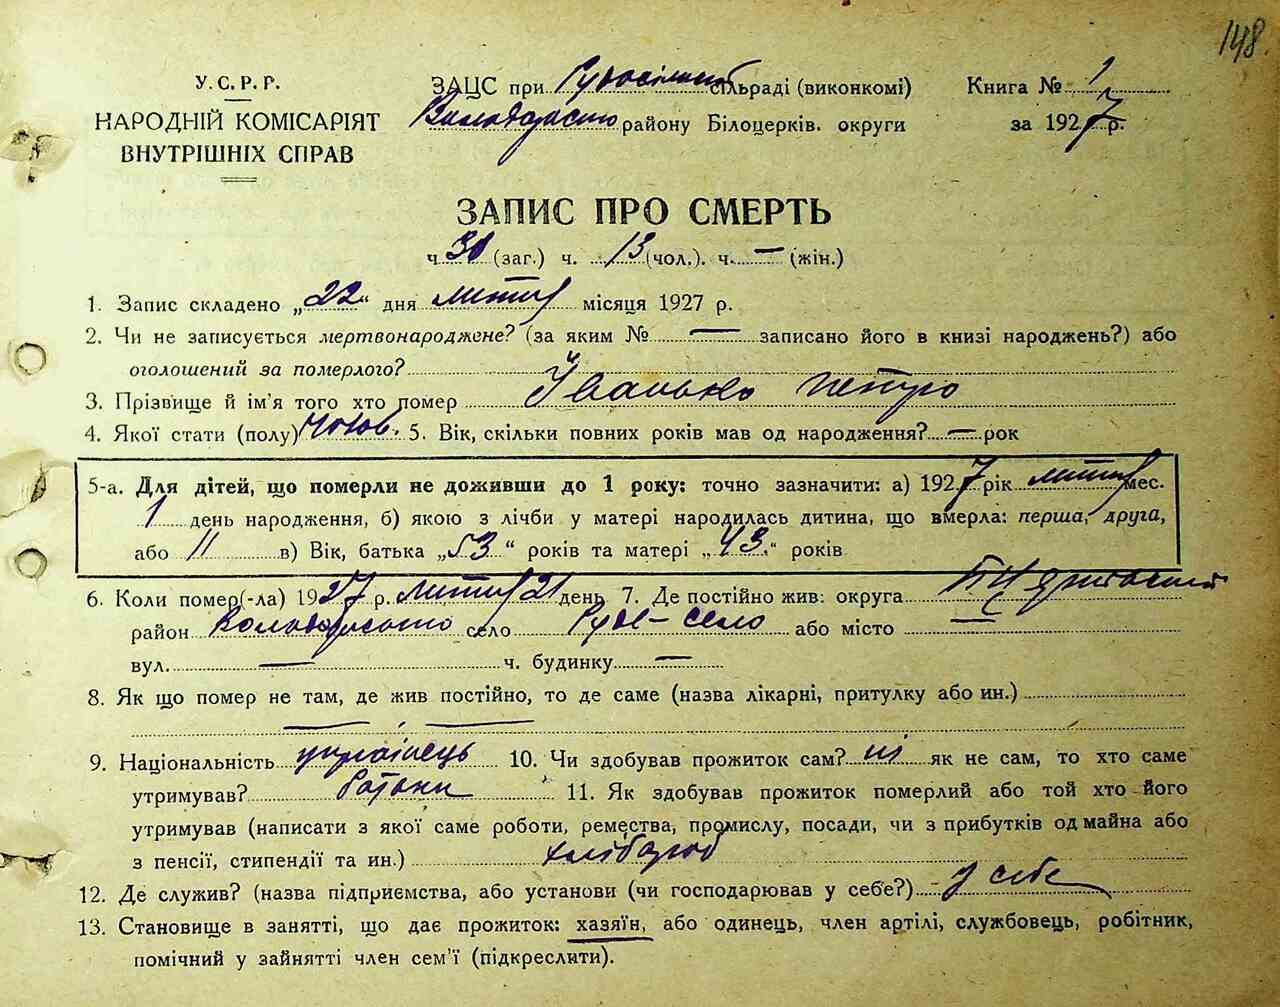 148.
У.С.Р.Р.
НАРОДНІЙ КОМІСАРІЯТ
ВНУТРІШНІХ СПРАВ
ЗАЦС при сільраді (виконкомі)
району Білоцерків. округи
Книга № 1
за 1927 р.
ЗАПИС ПРО СМЕРТЬ
ч. 30 (заг.) ч. 13 (чол.). ч. — (жін.)
1. Запис складено „22“ дня місяця 1927 р.
2. Чи не записується мертвонароджене? (за яким № — записано його в книзі народжень?) або
оголошений за померлого? —
3. Прізвище й ім'я того хто помер Іванько Петро
4. Якої стати (полу) чолов. 5. Вік, скільки повних років мав од народження? — рок
5-а. Для дітей, що померли не доживши до 1 року: точно зазначити: а) 1927 рік мес.
1 день народження, б) якою з лічби у матері народилась дитина, що вмерла: перша, друга,
або 11 в) Вік, батька „53“ років та матері „43.“ років
6. Коли помер(-ла) 1927 р. 21 день 7. Де постійно жив: округа
район село Руде-село або місто —
вул. — ч. будинку —
8. Як що помер не там, де жив постійно, то де саме (назва лікарні, притулку або ин.)
— —
9. Національність українець 10. Чи здобував прожиток сам? ні як не сам, то хто саме
утримував? батьки 11. Як здобував прожиток померлий або той хто його
утримував (написати з якої саме роботи, ремества, промислу, посади, чи з прибутків од майна або
з пенсії, стипендії та ин.) хлібороб
12. Де служив? (назва підприємства, або установи (чи господарював у себе?) у себе
13. Становище в занятті, що дає прожиток: хазяїн, або одинець, член артілі, службовець, робітник,
помічний у зайнятті член сем'ї (підкреслити).